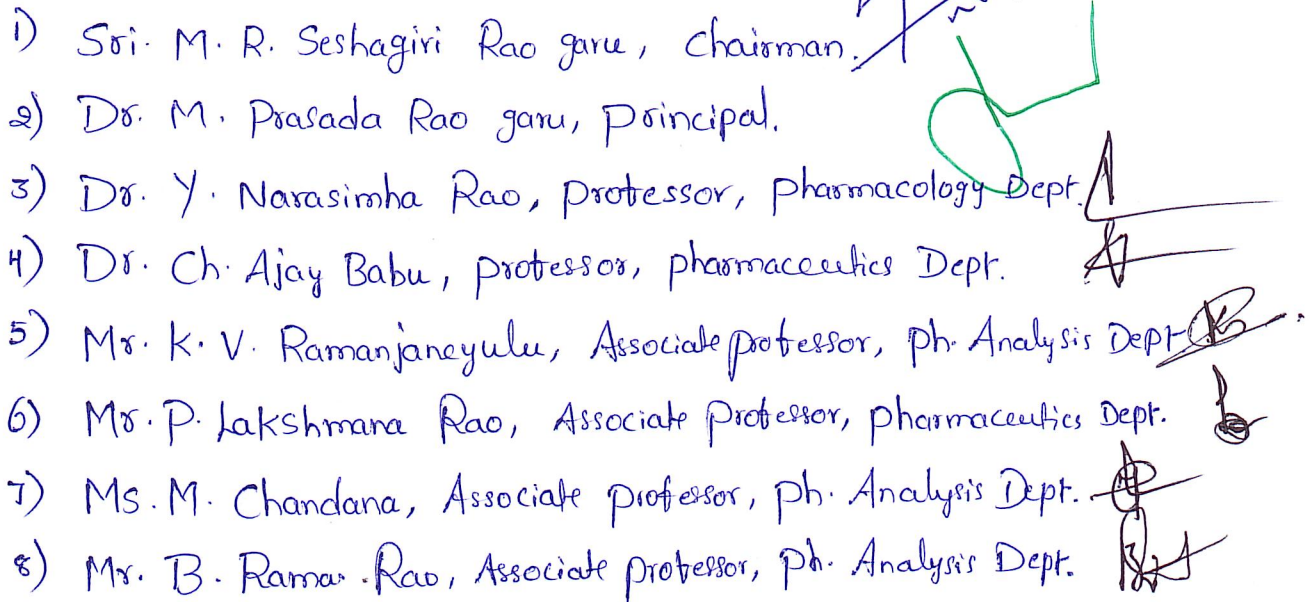 1) Sri. M. R. Seshagiri Rao garu, Chairman.
2) Dr. M. Prasada Rao garu, Principal.
3) Dr. Y. Narasimha Rao, Professor, Pharmacology Dept.
4) Dr. Ch. Ajay Babu, Professor, pharmaceutics Dept.
5) Mr. K. V. Ramanjaneyulu, Associate professor, ph. Analysis Dept
6) Mr. P. Lakshmana Rao, Associate Professor, pharmaceutics Dept.
7) Ms. M. Chandana, Associate professor, ph. Analysis Dept.
8) Mr. B. Rama Rao, Associate professor, ph. Analysis Dept.